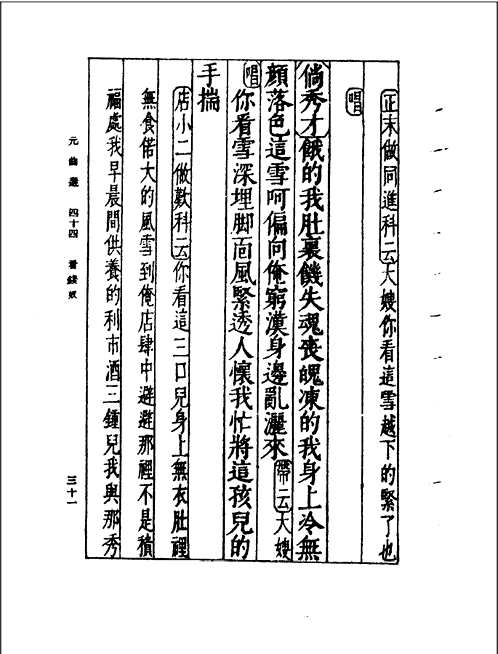 正末做同進科云大嫂你看這雪越下的緊了也
唱
倘秀才餓的我肚裏饑失魂喪魄凍的我身上冷無
顔落色這雪呵偏向俺窮漢身邊亂灑來帶云大嫂
唱你看雪深埋脚面風緊透人懷我忙將這孩兒的
手揣
店小二做歎科云你看這三口兒身上無衣肚裡
無食偌大的風雪到俺店肆中避避那裡不是積
福處我早晨間供養的利市酒三鍾兒我與那秀
元曲選 四十四 看錢奴 三十一